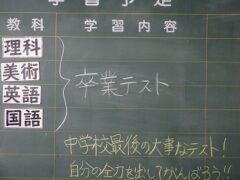 学習予定
教科 学習内容
理科
美術
英語
国語
卒業テスト
中学校最後の大事なテスト!
自分の全力を出してがんばろう!!